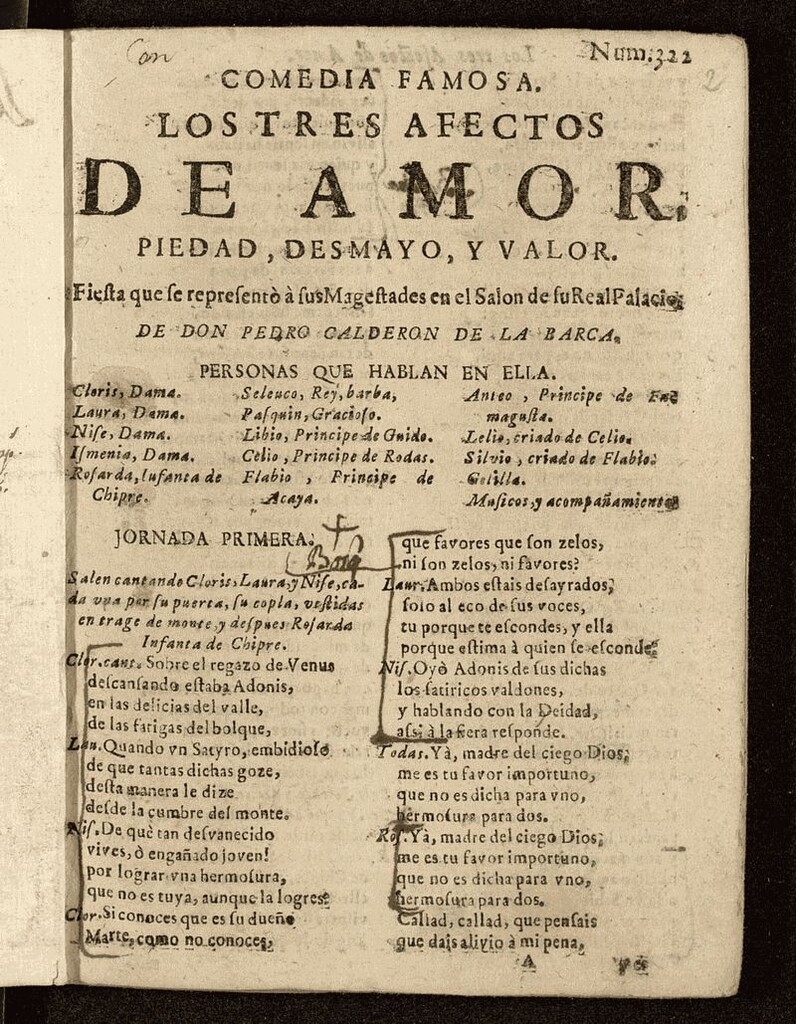 Con
Num. 322
2
COMEDIA FAMOSA.
LOS TRES AFECTOS
DE AMOR,
PIEDAD, DESMAYO, Y VALOR.
Fieſta que ſe repreſentò à ſus Mageſtades en el Salon de ſu Real Palacio.
DE DON PEDRO CALDERON DE LA BARCA.
PERSONAS QUE HABLAN EN ELLA.
Cloris, Dama.
Laura, Dama.
Niſe, Dama.
Iſmenia, Dama.
Roſarda, Iufanta de
Chipre.
Seleuco, Rey, barba,
Paſquin, Gracioſo.
Libio, Principe de Guido.
Celio, Principe de Rodas.
Flabio, Principe de
Acaya.
Anteo, Principe de Fa-
maguſta.
Lelio, criado de Celio.
Silvio, criado de Flabio.
Gelilla.
Muſicos, y acompañamiento
JORNADA PRIMERA.
Salen cantando Cloris, Laura, y Niſe, ca-
da vna por ſu puerta, ſu copla, veſtidas
en trage de monte, y deſpues Roſarda
Infanta de Chipre.
Clor. cant. Sobre el regazo de Venus
deſcanſando eſtaba Adonis,
en las delicias del valle,
de las fatigas del bolque,
Lau. Quando vn Satyro, embidioſo
de que tantas dichas goze,
deſta manera le dize
deſde la cumbre del monte.
Niſ. De què tan deſvanecido
vives, ò engañado joven!
por lograr vna hermoſura,
que no es tuya, aunque la logres?
Clor. Si conoces que es ſu dueño
Marte, como no conoces,
que favores que ſon zelos,
ni ſon zelos, ni favores?
Laur. Ambos eſtais deſayrados,
ſolo al eco de ſus voces,
tu porque te eſcondes, y ella
porque eſtima à quien ſe eſconde.
Niſ. Oyò Adonis de ſus dichas
los ſatiricos valdones,
y hablando con la Deidad,
aſsi à la fiera reſponde.
Todas. Yà, madre del ciego Dios,
me es tu favor importuno,
que no es dicha para vno,
hermoſura para dos.
Roſ. Yà, madre del ciego Dios,
me es tu favor importuno,
que no es dicha para vno,
hermoſura para dos.
Callad, callad, que penſais
que dais alivio à mi pena,
A